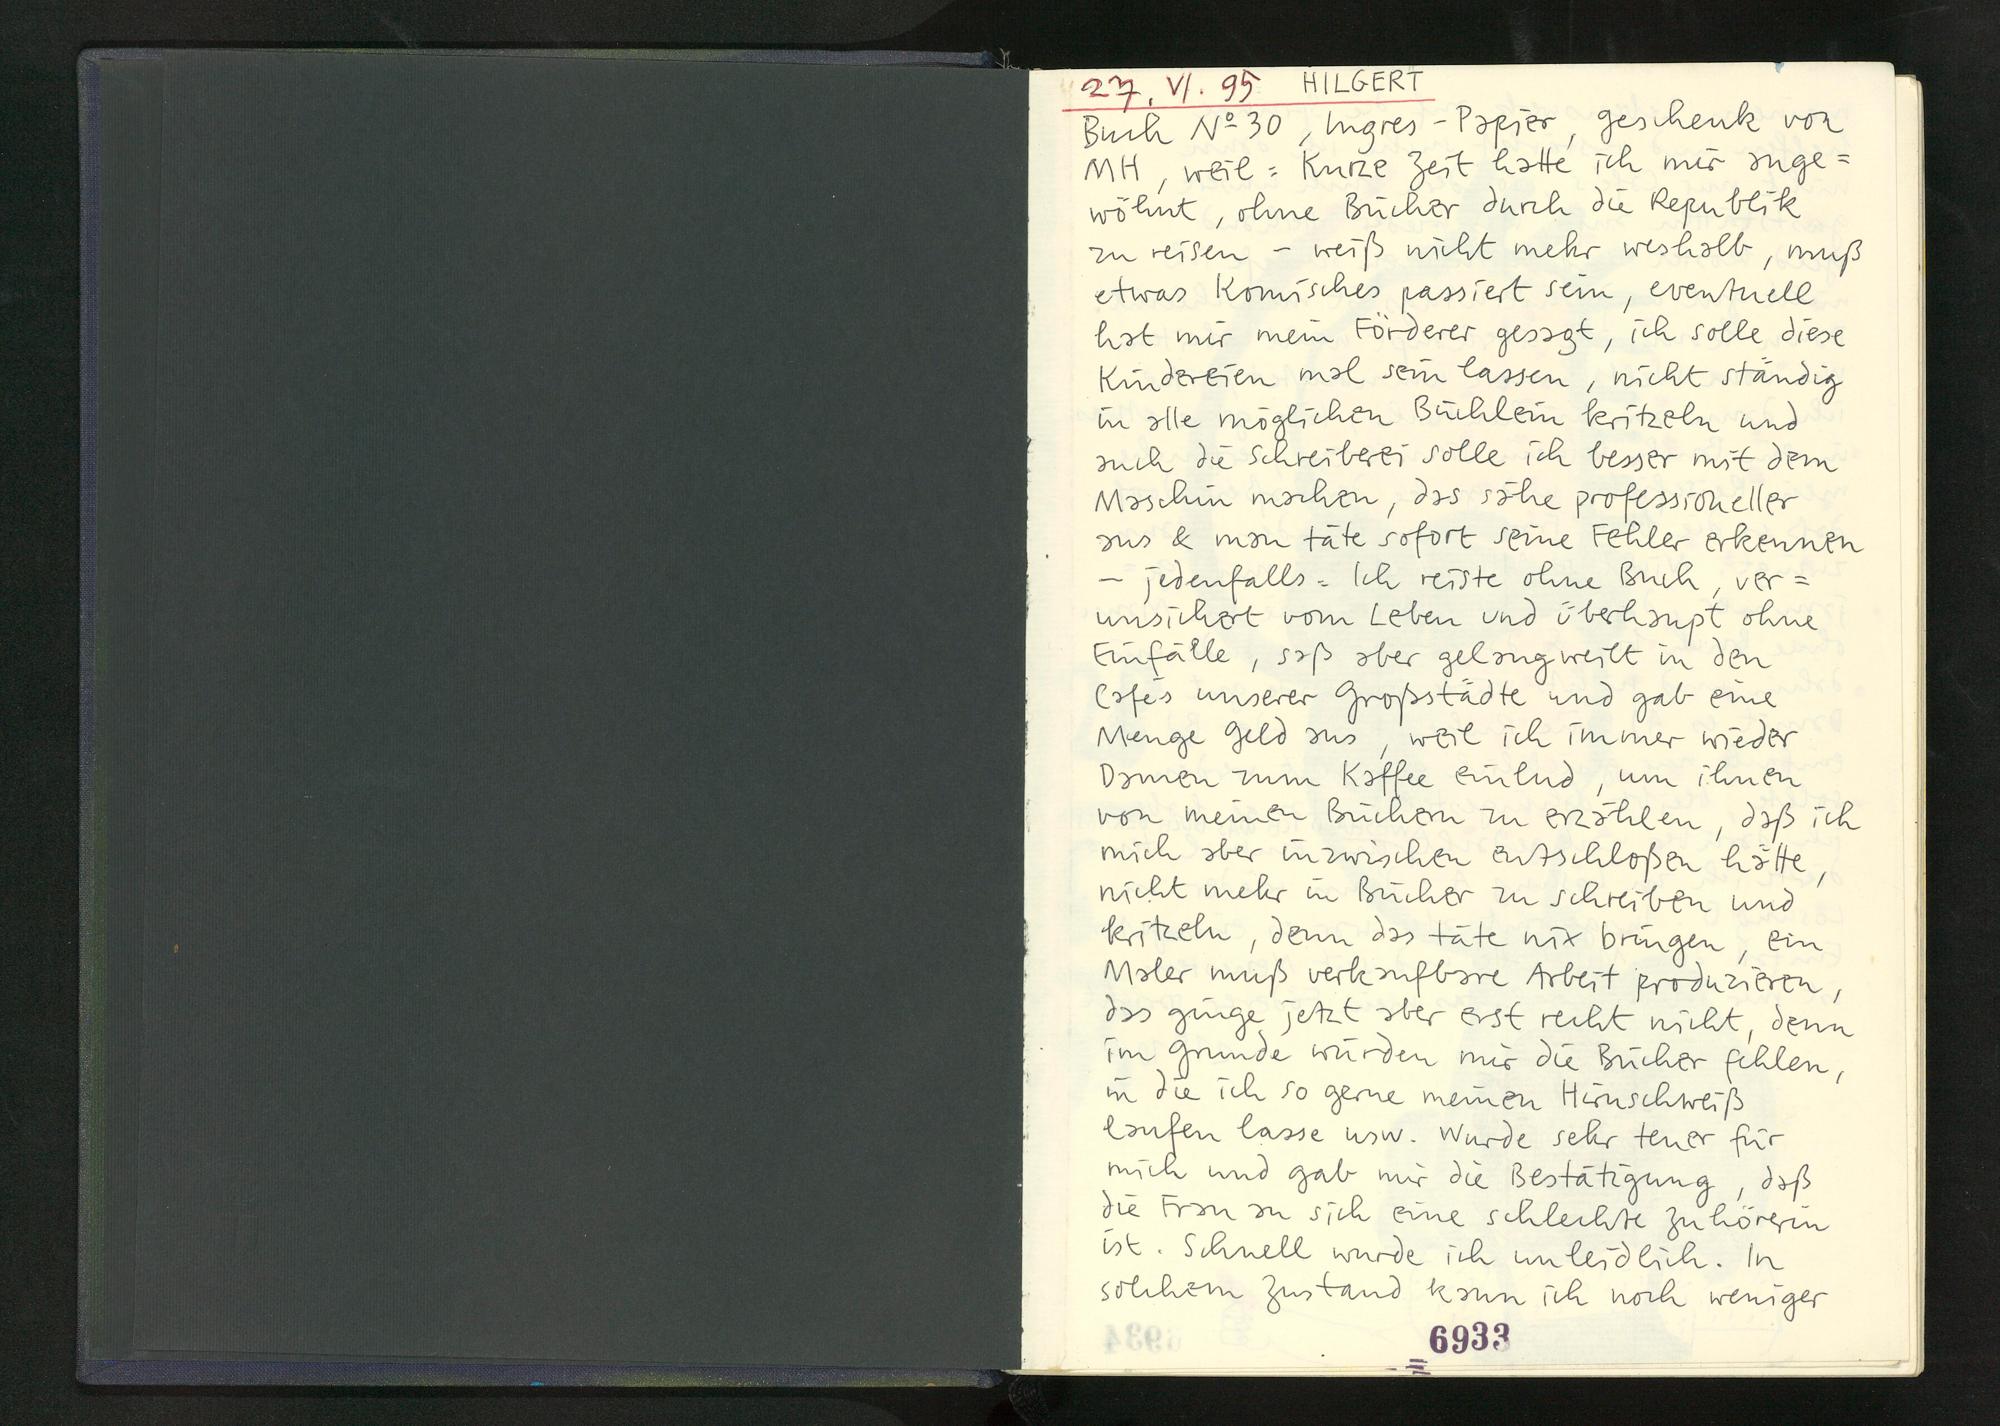 27. VI. 95 HILGERT
Buch Nº 30, Ingres-Papier, geschenk von
MH, weil = Kurze Zeit hatte ich mir ange=
wöhnt, ohne Bücher durch die Republik
zu reisen – weiß nicht mehr weshalb, muß
etwas Komisches passiert sein, eventuell
hat mir mein Förderer gesagt, ich solle diese
Kindereien mal sein lassen, nicht ständig
in alle möglichen Büchlein kritzeln und
auch die Schreiberei solle ich besser mit dem
Maschin machen, das sähe professioneller
aus & man täte sofort seine Fehler erkennen
– jedenfalls = Ich reiste ohne Buch, ver=
unsichert vom Leben und überhaupt ohne
Einfälle, saß aber gelangweilt in den
Cafés unserer Großstädte und gab eine
Menge Geld aus, weil ich immer wieder
Damen zum Kaffee einlud, um ihnen
von meinen Büchern zu erzählen, daß ich
mich aber inzwischen entschloßen hätte,
nicht mehr in Bücher zu schreiben und
kritzeln, denn das täte nix bringen, ein
Maler muß verkaufbare Arbeit produzieren,
das ginge jetzt aber erst recht nicht, denn
im Grunde würden mir die Bücher fehlen,
in die ich so gerne meinen Hirnschweiß
laufen lasse usw. Wurde sehr teuer für
mich und gab mir die Bestätigung, daß
die Frau an sich eine schlechte Zuhörerin
ist. Schnell wurde ich unleidlich. In
solchem Zustand kann ich noch weniger
6933